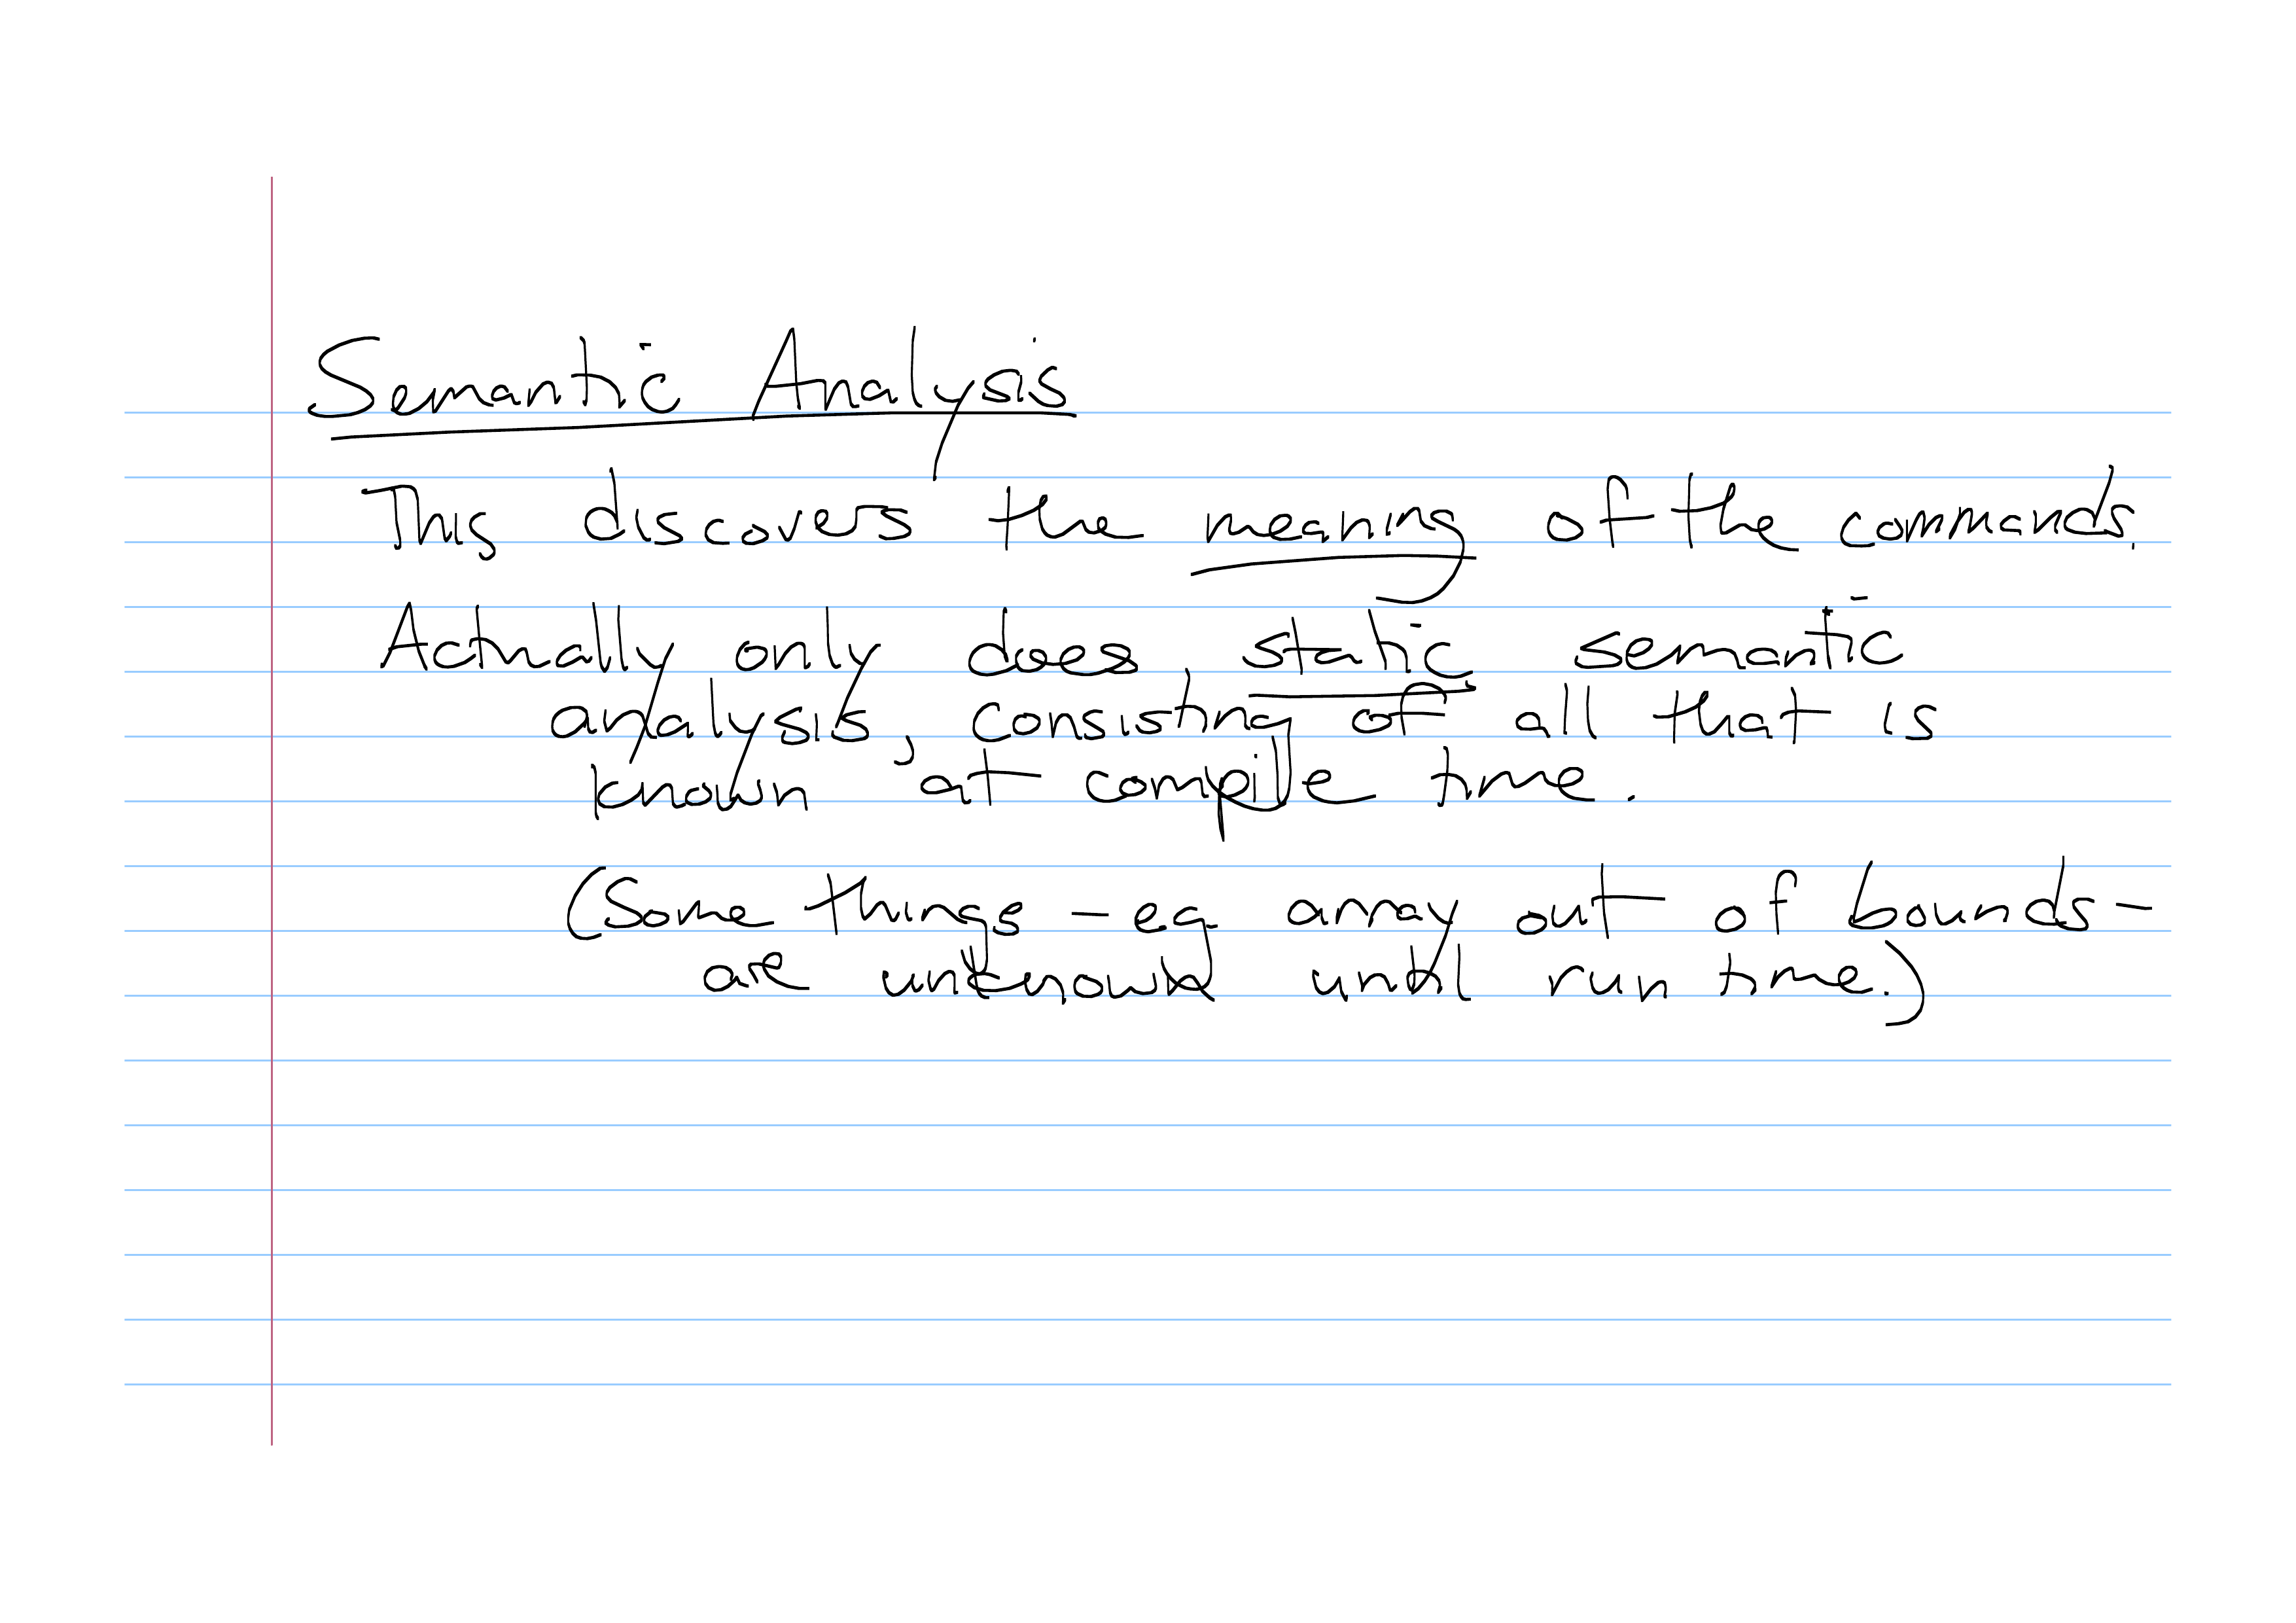 Semantic Analysis
This discovers the meaning of the commands.
Actually only does static semantic
analysis, consisting of all that is
known at compile time.
(Some things - eg array out of bounds -
are unknown until run time.)